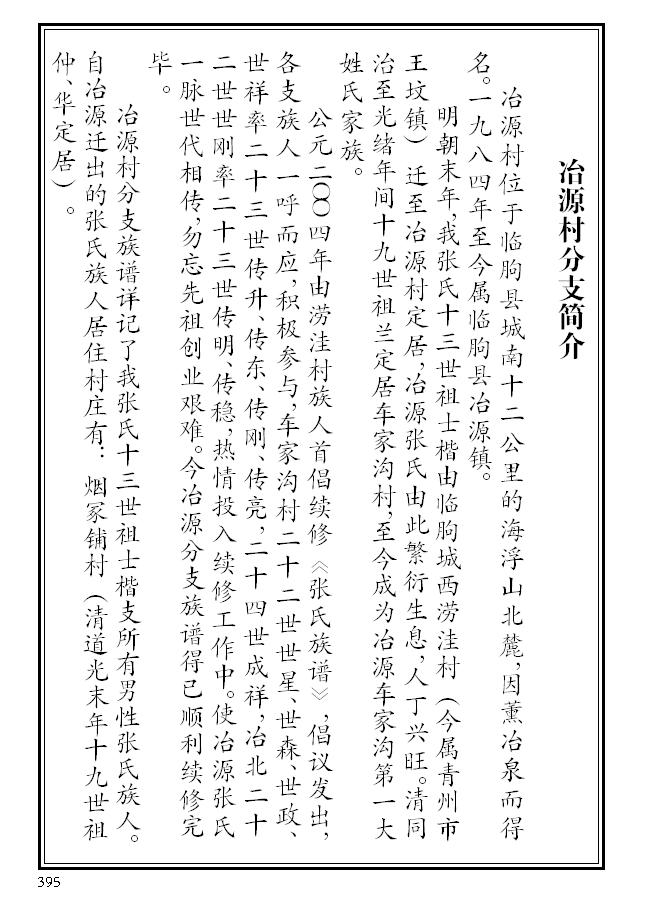 冶源村分支简介
冶源村位于临朐县城南十二公里的海浮山北麓，因薰冶泉而得
名。一九八四年至今属临朐县冶源镇。
明朝末年，我张氏十三世祖士楷由临朐城西涝洼村（今属青州市
王坟镇）迁至冶源村定居，冶源张氏由此繁衍生息，人丁兴旺。清同
治至光绪年间十九世祖兰定居车家沟村，至今成为冶源车家沟第一大
姓氏家族。
公元二〇〇四年由涝洼村族人首倡续修《张氏族谱》，倡议发出，
各支族人一呼而应，积极参与，车家沟村二十二世世星、世森、世政、
世祥率二十三世传升、传东、传刚、传亮，二十四世成祥，冶北二十
二世世刚率二十三世传明、传稳，热情投入续修工作中。使冶源张氏
一脉世代相传，勿忘先祖创业艰难。今冶源分支族谱得已顺利续修完
毕。
冶源村分支族谱详记了我张氏十三世祖士楷支所有男性张氏族人。
自冶源迁出的张氏族人居住村庄有：烟冢铺村（清道光末年十九世祖
仲、华定居）。
395